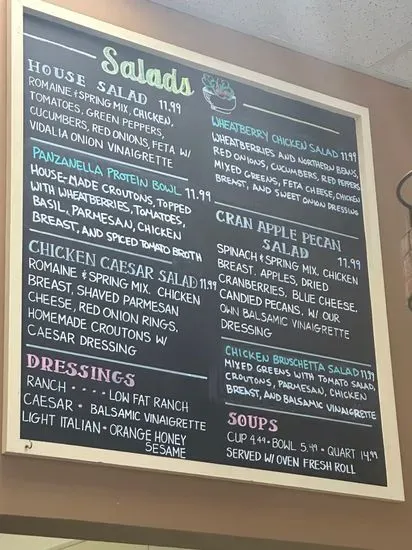 Salads
HOUSE SALAD 11.99
ROMAINE & SPRING MIX, CHICKEN,
TOMATOES, GREEN PEPPERS,
CUCUMBERS, RED ONIONS, FETA W/
VIDALIA ONION VINAIGRETTE
PANZANELLA PROTEIN BOWL 11.99
HOUSE-MADE CROUTONS, TOPPED
WITH WHEATBERRIES, TOMATOES,
BASIL, PARMESAN, CHICKEN
BREAST, AND SPICED TOMATO BROTH
CHICKEN CAESAR SALAD 11.99
ROMAINE & SPRING MIX. CHICKEN
BREAST, SHAVED PARMESAN
CHEESE, RED ONION RINGS.
HOMEMADE CROUTONS W/
CAESAR DRESSING
DRESSINGS
RANCH • • • • LOW FAT RANCH
CAESAR • BALSAMIC VINAIGRETTE
LIGHT ITALIAN • ORANGE HONEY
SESAME
WHEATBERRY CHICKEN SALAD 11.99
WHEATBERRIES AND NORTHERN BEANS,
RED ONIONS, CUCUMBERS, RED PEPPERS
MIXED GREENS, FETA CHEESE, CHICKEN
BREAST, AND SWEET ONION DRESSING
CRAN APPLE PECAN
SALAD 11.99
SPINACH & SPRING MIX. CHICKEN
BREAST. APPLES, DRIED
CRANBERRIES, BLUE CHEESE.
CANDIED PECANS. W/ OUR
OWN BALSAMIC VINAIGRETTE
DRESSING
CHICKEN BRUSCHETTA SALAD 11.99
MIXED GREENS WITH TOMATO SALAD,
CROUTONS, PARMESAN, CHICKEN
BREAST, AND BALSAMIC VINAIGRETTE
SOUPS
CUP 4.49 • BOWL 5.49 • QUART 14.99
SERVED W/ OVEN FRESH ROLL